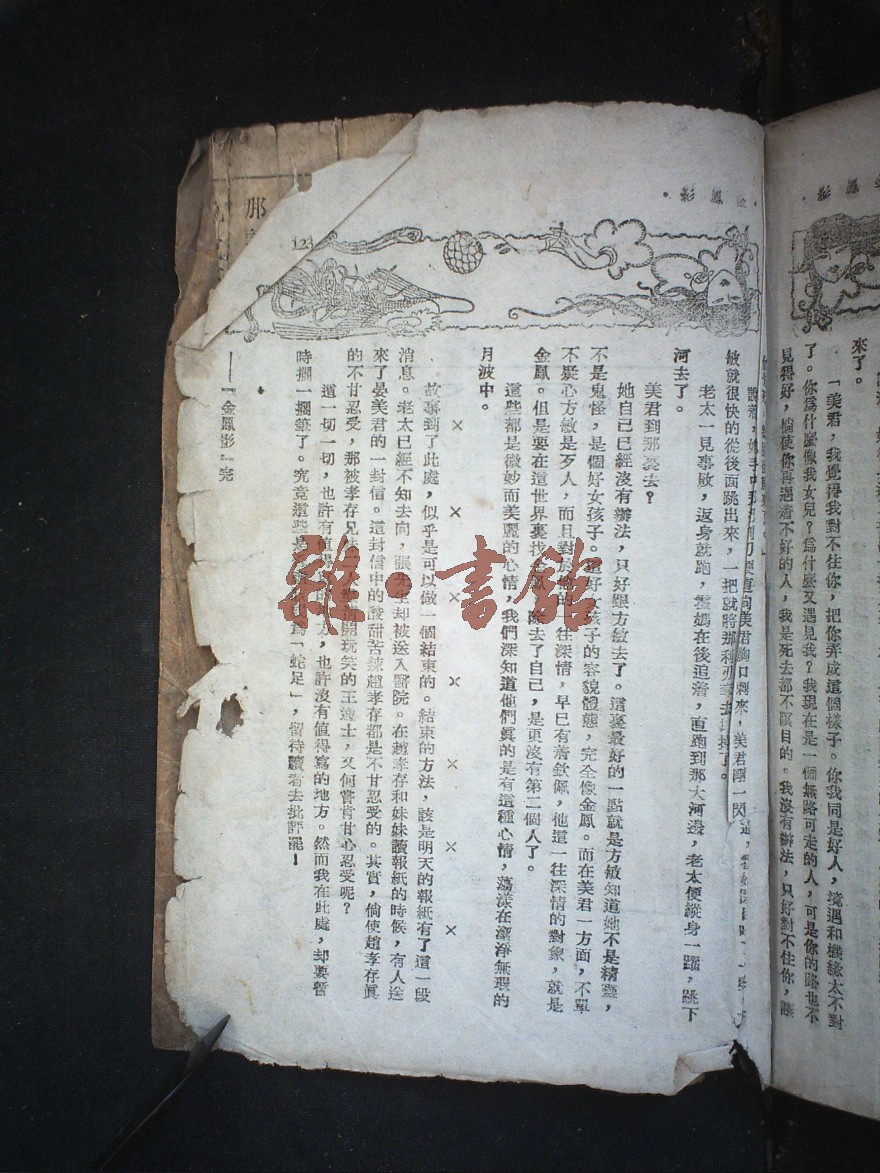 來了。
「美君，我覺得我對不住你，把你弄成這個樣子。你我同是好人，境遇和機緣太不對
了。你爲什麼像我女兒？爲什麼又遇見我？我現在是一個無路可走的人，可是你的路也不
見得好，倘使你再遇着不好的人，我是死去都不瞑目的。我沒有辦法，只好對不住你，
金鳳影
說着，她手中
便直向美君胸口刺來，美君剛一閃
敏就很快的從後面跳出來，一把就將那利刃
老太一見事敗，返身就跑，雲嫣在後追着，直跑到那大河邊，老太便縱身一躍，跳下
河去了。
美君到那裏去？
她自己已經沒有辦法，只好跟方敏去了。這裏最好的一點就是方敏知道她不是精靈，
不是鬼怪，是個好女孩子。這好女孩子的容貌體態，完全像金鳳。而在美君一方面，不單
不疑心方敏是歹人，而且對於他的一往深情，早已有着欽佩，他這一往深情的對象，就是
金鳳。但是要在這世界裏找金鳳，除去了自己，是更沒有第二個人了。
這些都是微妙而美麗的心情，我們深知道他們眞的是有這種心情，蕩漾在潔淨無瑕的
月波中。
× × × × × × ×
故事到了此處，似乎是可以做一個結束的。結束的方法，該是明天的報紙有了這一段
消息。老太已經不知去向，張先生却被送入醫院。在趙孝存和妹妹讀報紙的時候，有人送
來了晏美君的一封信。這封信中的酸甜苦辣趙孝存都是不甘忍受的。其實，倘使趙孝存眞
的不甘忍受，那被孝存兄妹
開玩笑的王逸士，又何嘗肯甘心忍受呢？
這一切一切，也許有值得
方，也許沒有值得寫的地方。然而我在此處，却要暫
時擱一擱筆了。究竟這些是
爲「蛇足」，留待讀者去批評罷！
——「金鳳影」完
12
那
雜·書館